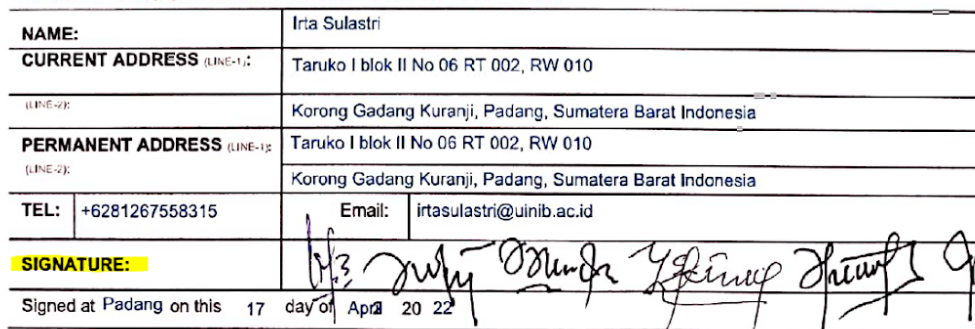 NAME: Irta Sulastri
CURRENT ADDRESS (LINE-1): Taruko I blok II No 06 RT 002, RW 010
(LINE-2): Korong Gadang Kuranji, Padang, Sumatera Barat Indonesia
PERMANENT ADDRESS (LINE-1): Taruko I blok II No 06 RT 002, RW 010
(LINE-2): Korong Gadang Kuranji, Padang, Sumatera Barat Indonesia
TEL: +6281267558315 Email: irtasulastri@uinib.ac.id
SIGNATURE:
Signed at Padang on this 17 day of April 20 22